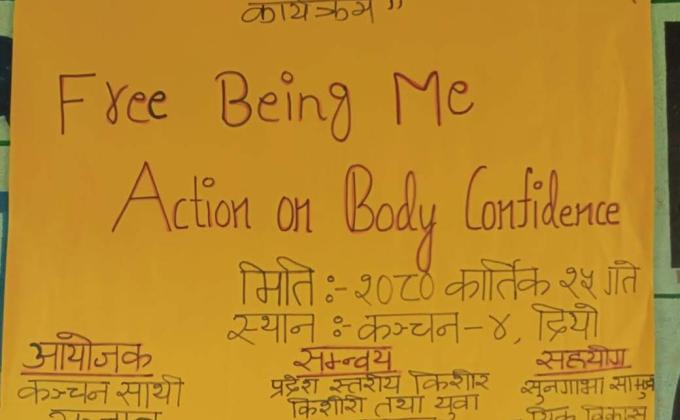 कार्यक्रम"
Free Being Me
Action on Body Confidence
मिति :- २०८० कार्तिक २५ गते
स्थान :- कञ्चन-४, द्रियो
आयोजक
कञ्चन साथी
सम्न्वय
प्रदेश स्तरीय किशोर
किशोरी तथा युवा
सहयोग
सुनगाभा
विकास